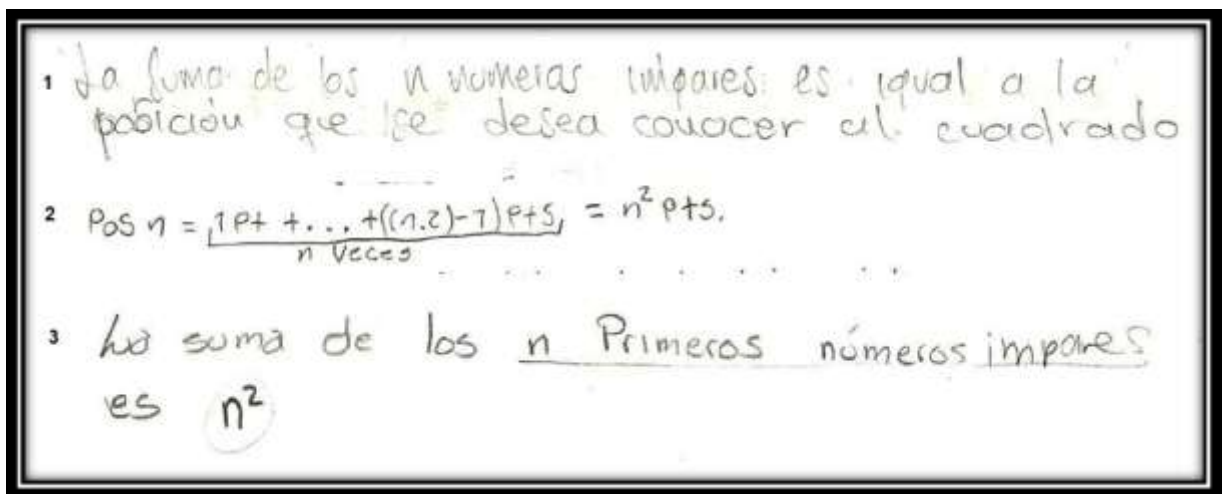 1 La suma de los n numeros impares es igual a la
posición que se desea conocer al cuadrado
2 Pos n = 1P+ +...+((n.2)-1)P+S, = n² P+S.
n veces
3 La suma de los n Primeros números impares
es n²